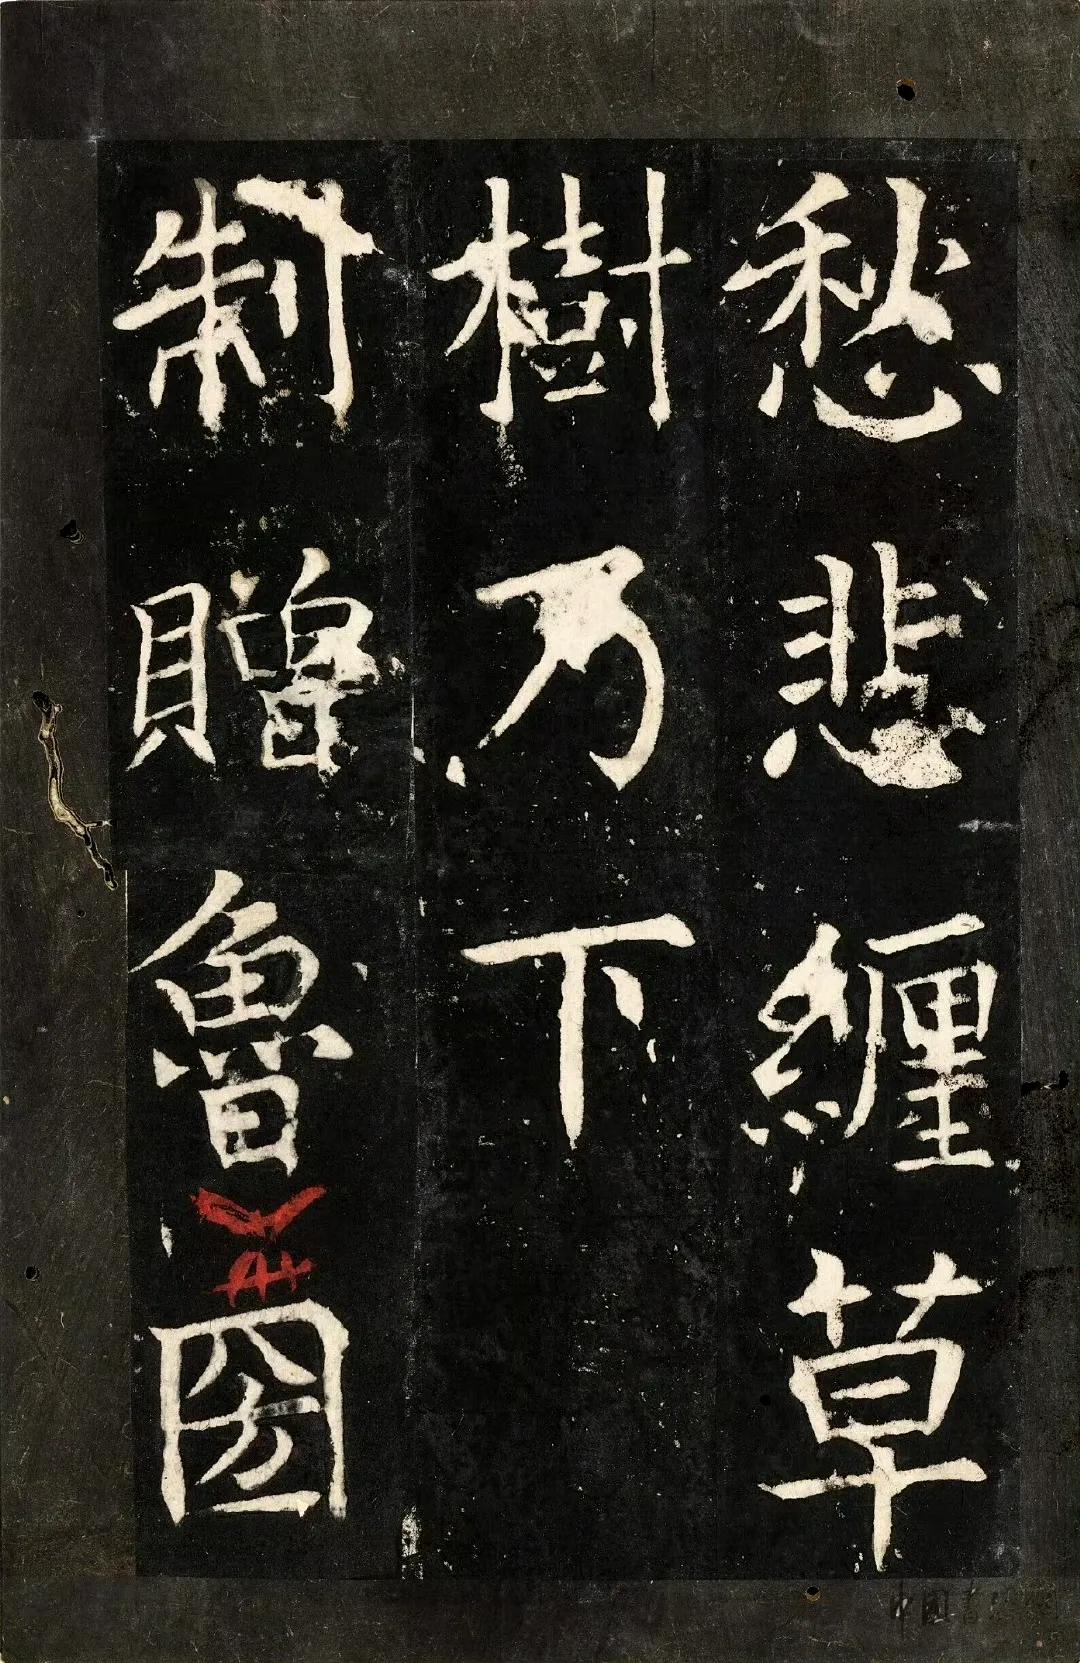 愁悲緾草
樹乃下
制贈魯圀
中國書